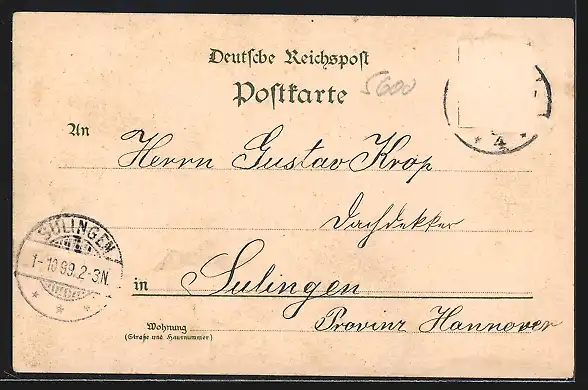 Deutsche Reichspost
Postkarte
5600
4
An
Herrn Gustav Krop
Dachdekker
SULINGEN
1-10 99. 2-3N.
in
Sulingen
Wohnung
(Straße und Hausnummer)
Provinz Hannover